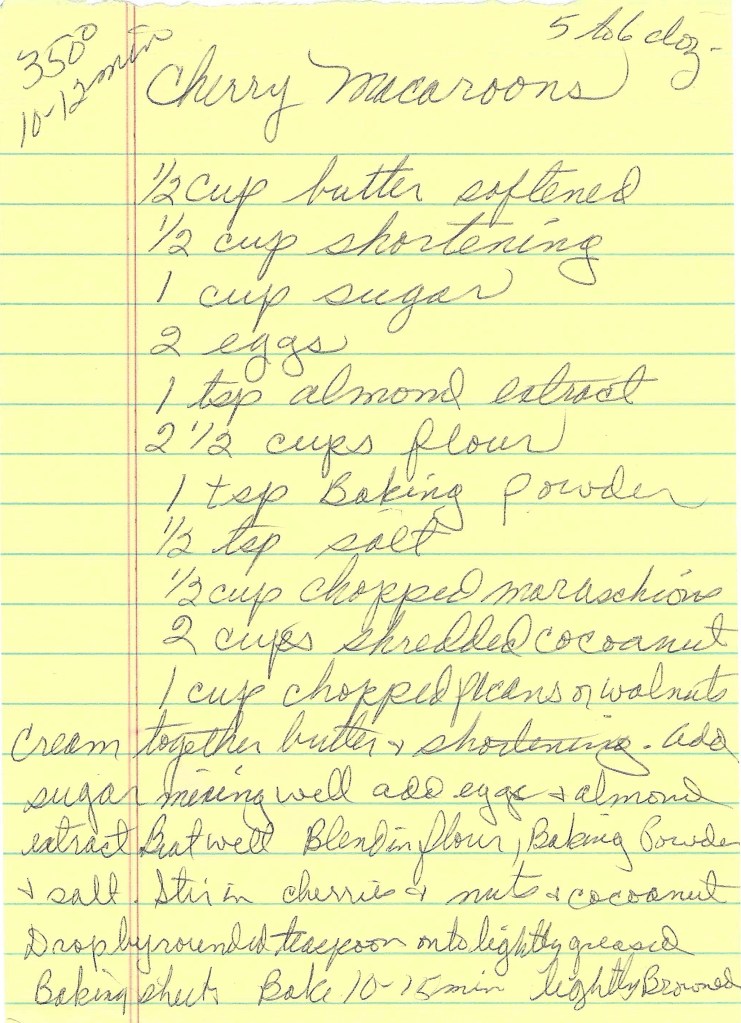 5 to 6 doz-
350°
10-12 min
Cherry Macaroons
1/2 cup butter softened
1/2 cup shortening
1 cup sugar
2 eggs
1 tsp almond extract
2 1/2 cups flour
1 tsp Baking Powder
1/2 tsp salt
1/2 cup chopped maraschions
2 cups shredded cocoanut
1 cup chopped pecans or walnuts
Cream together butter & shortening. add
sugar mixing well add eggs & almond
extract Beat well Blend in flour, Baking Powder
& salt. Stir in cherries & nuts & cocoanut
Drop by rounded teaspoon onto lightly greased
Baking sheets Bake 10-15 min lightly Browned